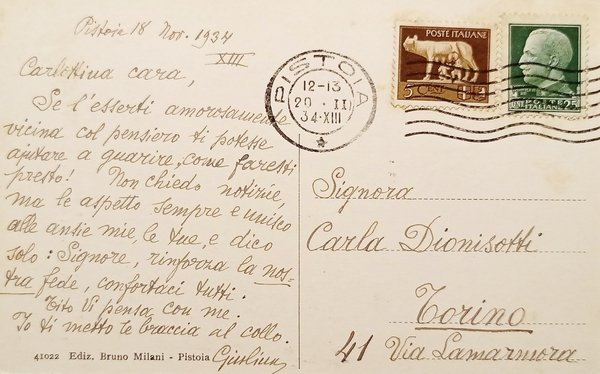 Pistoia 18 Nov. 1934
XIII
Carlottina cara,
Se l'esserti amorosamente
vicina col pensiero ti potesse
aiutare a guarire, come faresti
presto! Non chiedo notizie,
ma le aspetto sempre e unisco
alle ansie mie, le tue, e dico
solo: Signore, rinforza la nos-
tra fede, confortaci tutti.
Tito Vi pensa con me.
Io ti metto le braccia al collo.
Giuliana
41022 Ediz. Bruno Milani - Pistoia
PISTOIA
12-13
34-XIII
POSTE ITALIANE
5 CENT
POSTE
25
Signora
Carla Dionisotti
Torino
41 Via Lamarmora